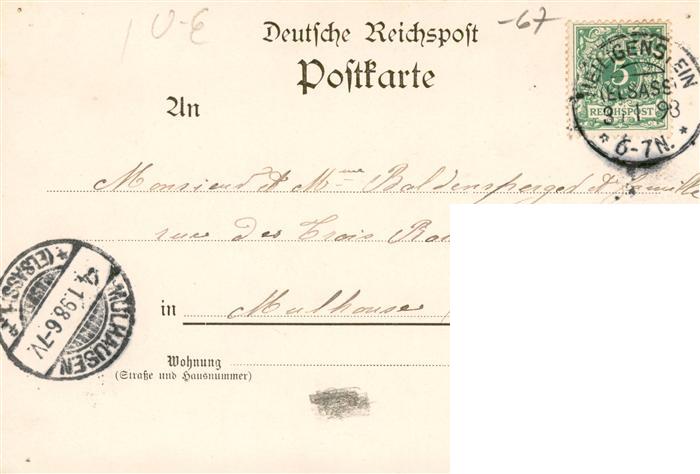 U-E -67
Deutsche Reichspost
Postkarte
5
REICHSPOST
HEILIGENSTEIN
(ELSASS)
98
* 6-7N. *
An
Monsieur et Mme Baldensperger et famille
rue des Trois
in Mulhouse
MÜLHAUSEN
1.98.6-7V.
*(ELSASS)*
Wohnung
(Straße und Hausnummer)